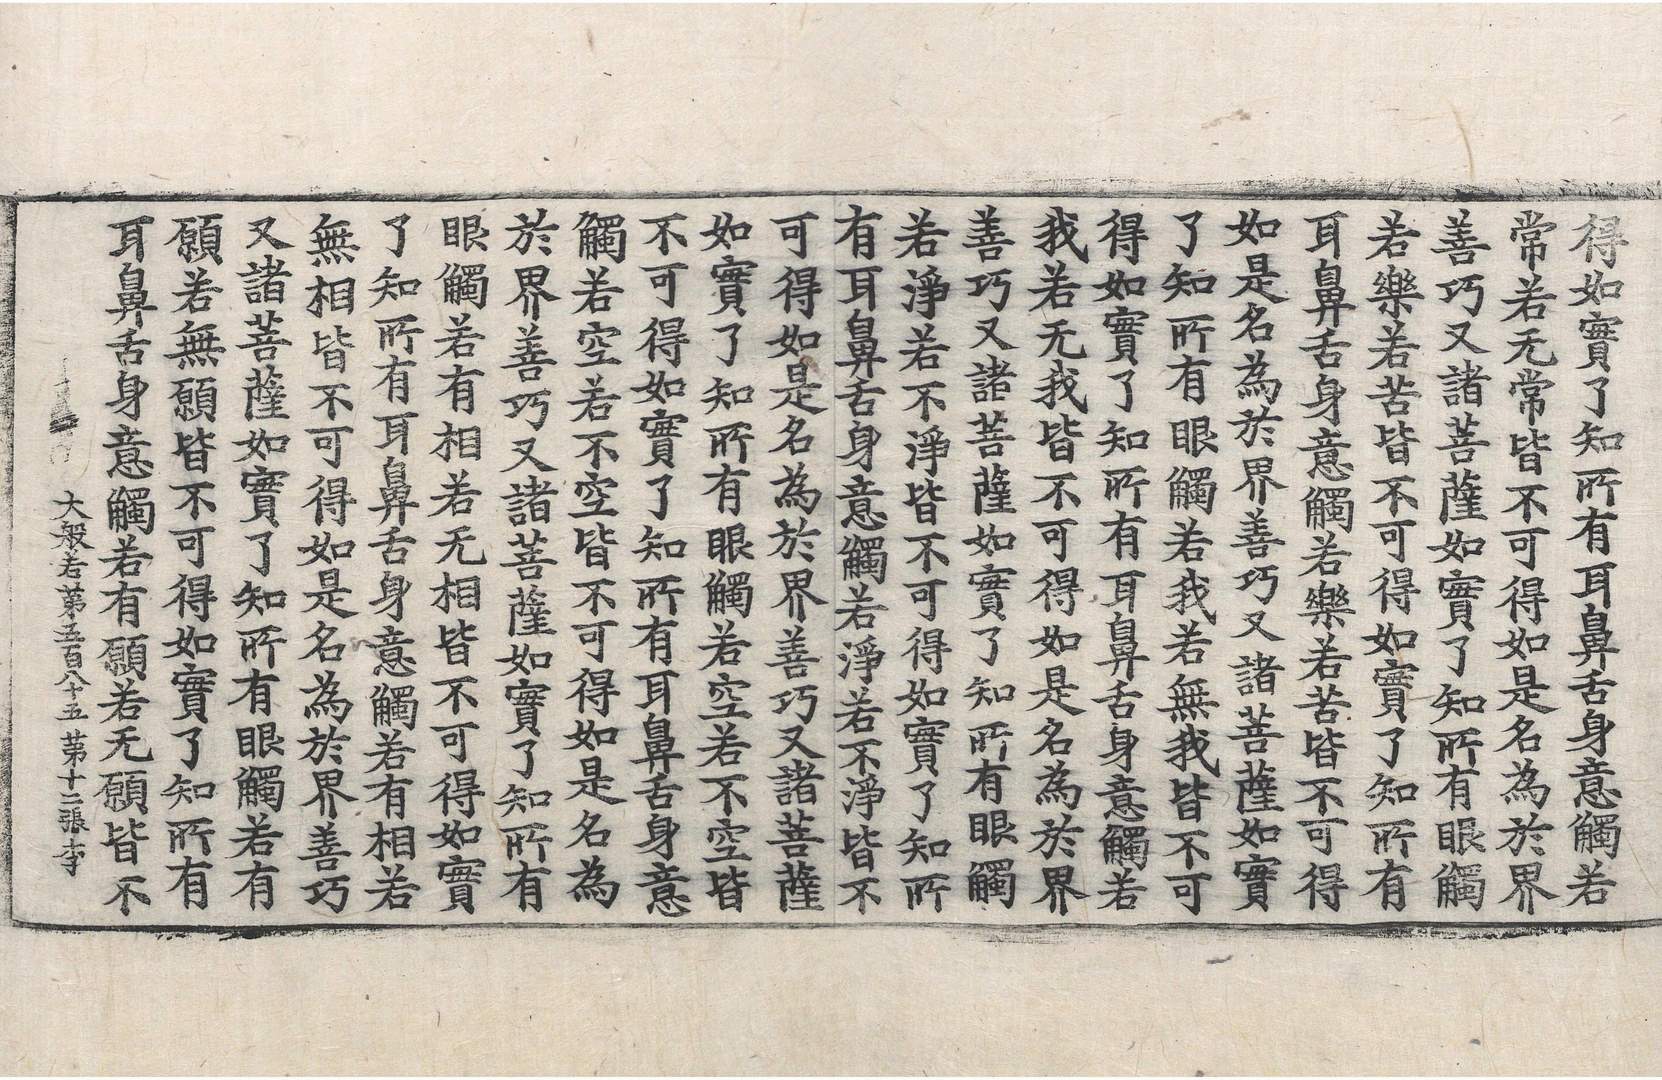 得如實了知所有耳鼻舌身意觸若
常若无常皆不可得如是名為於界
善巧又諸菩薩如實了知所有眼觸
若樂若苦皆不可得如實了知所有
耳鼻舌身意觸若樂若苦皆不可得
如是名為於界善巧又諸菩薩如實
了知所有眼觸若我若無我皆不可
得如實了知所有耳鼻舌身意觸若
我若无我皆不可得如是名為於界
善巧又諸菩薩如實了知所有眼觸
若淨若不淨皆不可得如實了知所
有耳鼻舌身意觸若淨若不淨皆不
可得如是名為於界善巧又諸菩薩
如實了知所有眼觸若空若不空皆
不可得如實了知所有耳鼻舌身意
觸若空若不空皆不可得如是名為
於界善巧又諸菩薩如實了知所有
眼觸若有相若无相皆不可得如實
了知所有耳鼻舌身意觸若有相若
無相皆不可得如是名為於界善巧
又諸菩薩如實了知所有眼觸若有
願若無願皆不可得如實了知所有
耳鼻舌身意觸若有願若无願皆不
大般若第五百八十五 第十二張 李